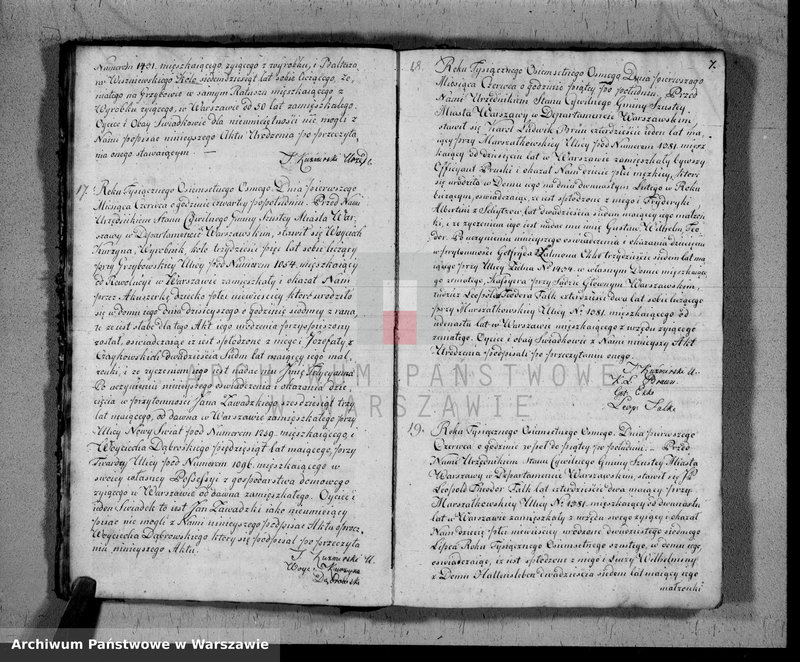 Numerem 1431. mieszkaiącego, żyiącego z wyrobku, i Baltaza=
ra Wiszniewskiego Koło siedemdziesiąt lat sobie liczącego, że,
małego na Grzybowie w samym Ratuszu mieszkaiącego z
Wyrobku żyiącego, w Warszawie od 50 lat zamieszkałego.
Oyciec i Obay Świadkowie dla nieumieiętności nie mogli z
Nami podpisać ninieyszego Aktu Urodzenia po przeczyta,
nia onego stawaiącym. —
17. Roku Tysiącznego Osiemsetnego Osmego. Dnia pierwszego
Miesiąca Czerwca o godzinie czwartey popołudniu. Przed Nami
Urzędnikiem Stanu Cywilnego Gminy Szóstey Miasta War,
szawy w Departamencie Warszawskim, stawił się Woyciech
Kurzyna, Wyrobnik, koło trzydzieści pięć lat sobie liczący
przy Grzybowskiey Ulicy Pod Numerem 1054. mieszkaiący
od Rewolucyi w Warszawie zamieszkały i okazał Nam
przez Akuszerkę dziecko płci niewieściey które urodziło
się w domu iego dnia dzisieyszego o godzinie siódmey z rana,
że iest słabe dla tego Akt iego urodzenia przyspieszony
został, oświadczaiąc iż iest spłodzone z niego i Jozefaty z
Gaykowskich dwadzieścia siedm lat maiącey iego mał,
żonki, i że życzeniem iego iest nadać mu Imię Felicyanna
Po uczynieniu ninieyszego oświadczenia i okazaniu dzie
cięcia w przytomności Jana Zawadzkiego sześćdziesiąt trzy
lat maiącego, od dawna w Warszawie zamieszkałego przy
Ulicy Nowy Świat pod Numerem 1259. mieszkaiącego i
Woyciecha Dąbroskiego pięćdziesiąt lat maiącego, przy
Twardey Ulicy pod Numerem 1096. mieszkaiącego w
swoiey własney Possessyi z gospodarstwa domowego
żyiącego w Warszawie od dawna zamieszkałego. Oyciec i
ieden Świadek to iest Jan Zawadzki iako nieumieiący
pisać nie mogli z Nami ninieyszego podpisać Aktu oprócz
Woyciecha Dąbrowskiego który się podpisał po przeczyta
niu ninieyszego Aktu.
Woyc. Kurzyna
Dąbrowski
7.
18. Roku Tysiącznego Osiemsetnego Osmego, Dnia pierwszego
Miesiąca Czerwca o godzinie piątey po południu. Przed
Nami Urzędnikiem Stanu Cywilnego Gminy Szóstey
Miasta Warszawy w Departamencie Warszawskim
stawił się Karol Ludwik Braun czterdzieści ieden lat ma,
iący przy Marszałkowskiey Ulicy pod Numerem 1081. miesz
kaiący od dziesięciu lat w Warszawie zamieszkały
Officyant Pruski i okazał Nam dziecie płci męzkiey, które
się urodziło w Domu iego na dniu dwunastym Lutego w Roku
bieżącym, oświadczaiąc, że iest spłodzone z niego i Frydryki
Albertini z Schytzow lat dwadzieścia siedem maiącey iego małżon,
ki, i że życzeniem iego iest nadać mu imie Gustaw, Wilhelm, Teo
dor. Po uczynieniu ninieyszego oświadczenia i okazaniu dziecięcia
w przytomności Gotfryda Zalmona Ekke trzydzieści siedem lat ma
iącego przy Ulicy Leszno No 1404. w własnym Domu mieszkaiące
go zmałego, Kassyera przy Sądzie Głównym Warszawskim,
tudzież Leopolda Teodora Falk czterdzieści dwa lat sobie liczącego
przy Marszałkowskiey Ulicy No 1081. mieszkaiącego od
iedenastu lat w Warszawie mieszkaiącego z urzędu żyiącego
zmałego. Oyciec i obay Świadkowie z Nami ninieyszy Akt
Urodzenia podpisali po przeczytaniu onego.
K. L. Braun
Leop. Falk
19. Roku Tysiącznego Osiemsetnego Osmego. Dnia pierwszego
Czerwca o godzinie wpół do piątey po południu. — Przed
Nami Urzędnikiem Stanu Cywilnego Gminy Szóstey Miasta
Warszawy w Departamencie Warszawskim, stawił się
Leopold Theodor Falk lat czterdzieści dwa maiący przy
Marszałkowskiey Ulicy No 1081. mieszkaiący od dwunastu
lat w Warszawie zamieszkały z urzędu swego żyiący i okazał
Nam dziecię płci niewieściey urodzone dwudziestego siódmego
Lipca Roku Tysiącznego Osiemsetnego szóstego, w domu iego,
oświadczaiąc, iż iest spłodzone z niego i Luizy Wilhelminy
z Domu Hallensleben dwadzieścia siedem lat maiącey iego
małżonki
ARCHIWUM PAŃSTWOWE
W WARSZAWIE
Archiwum Państwowe w Warszawie